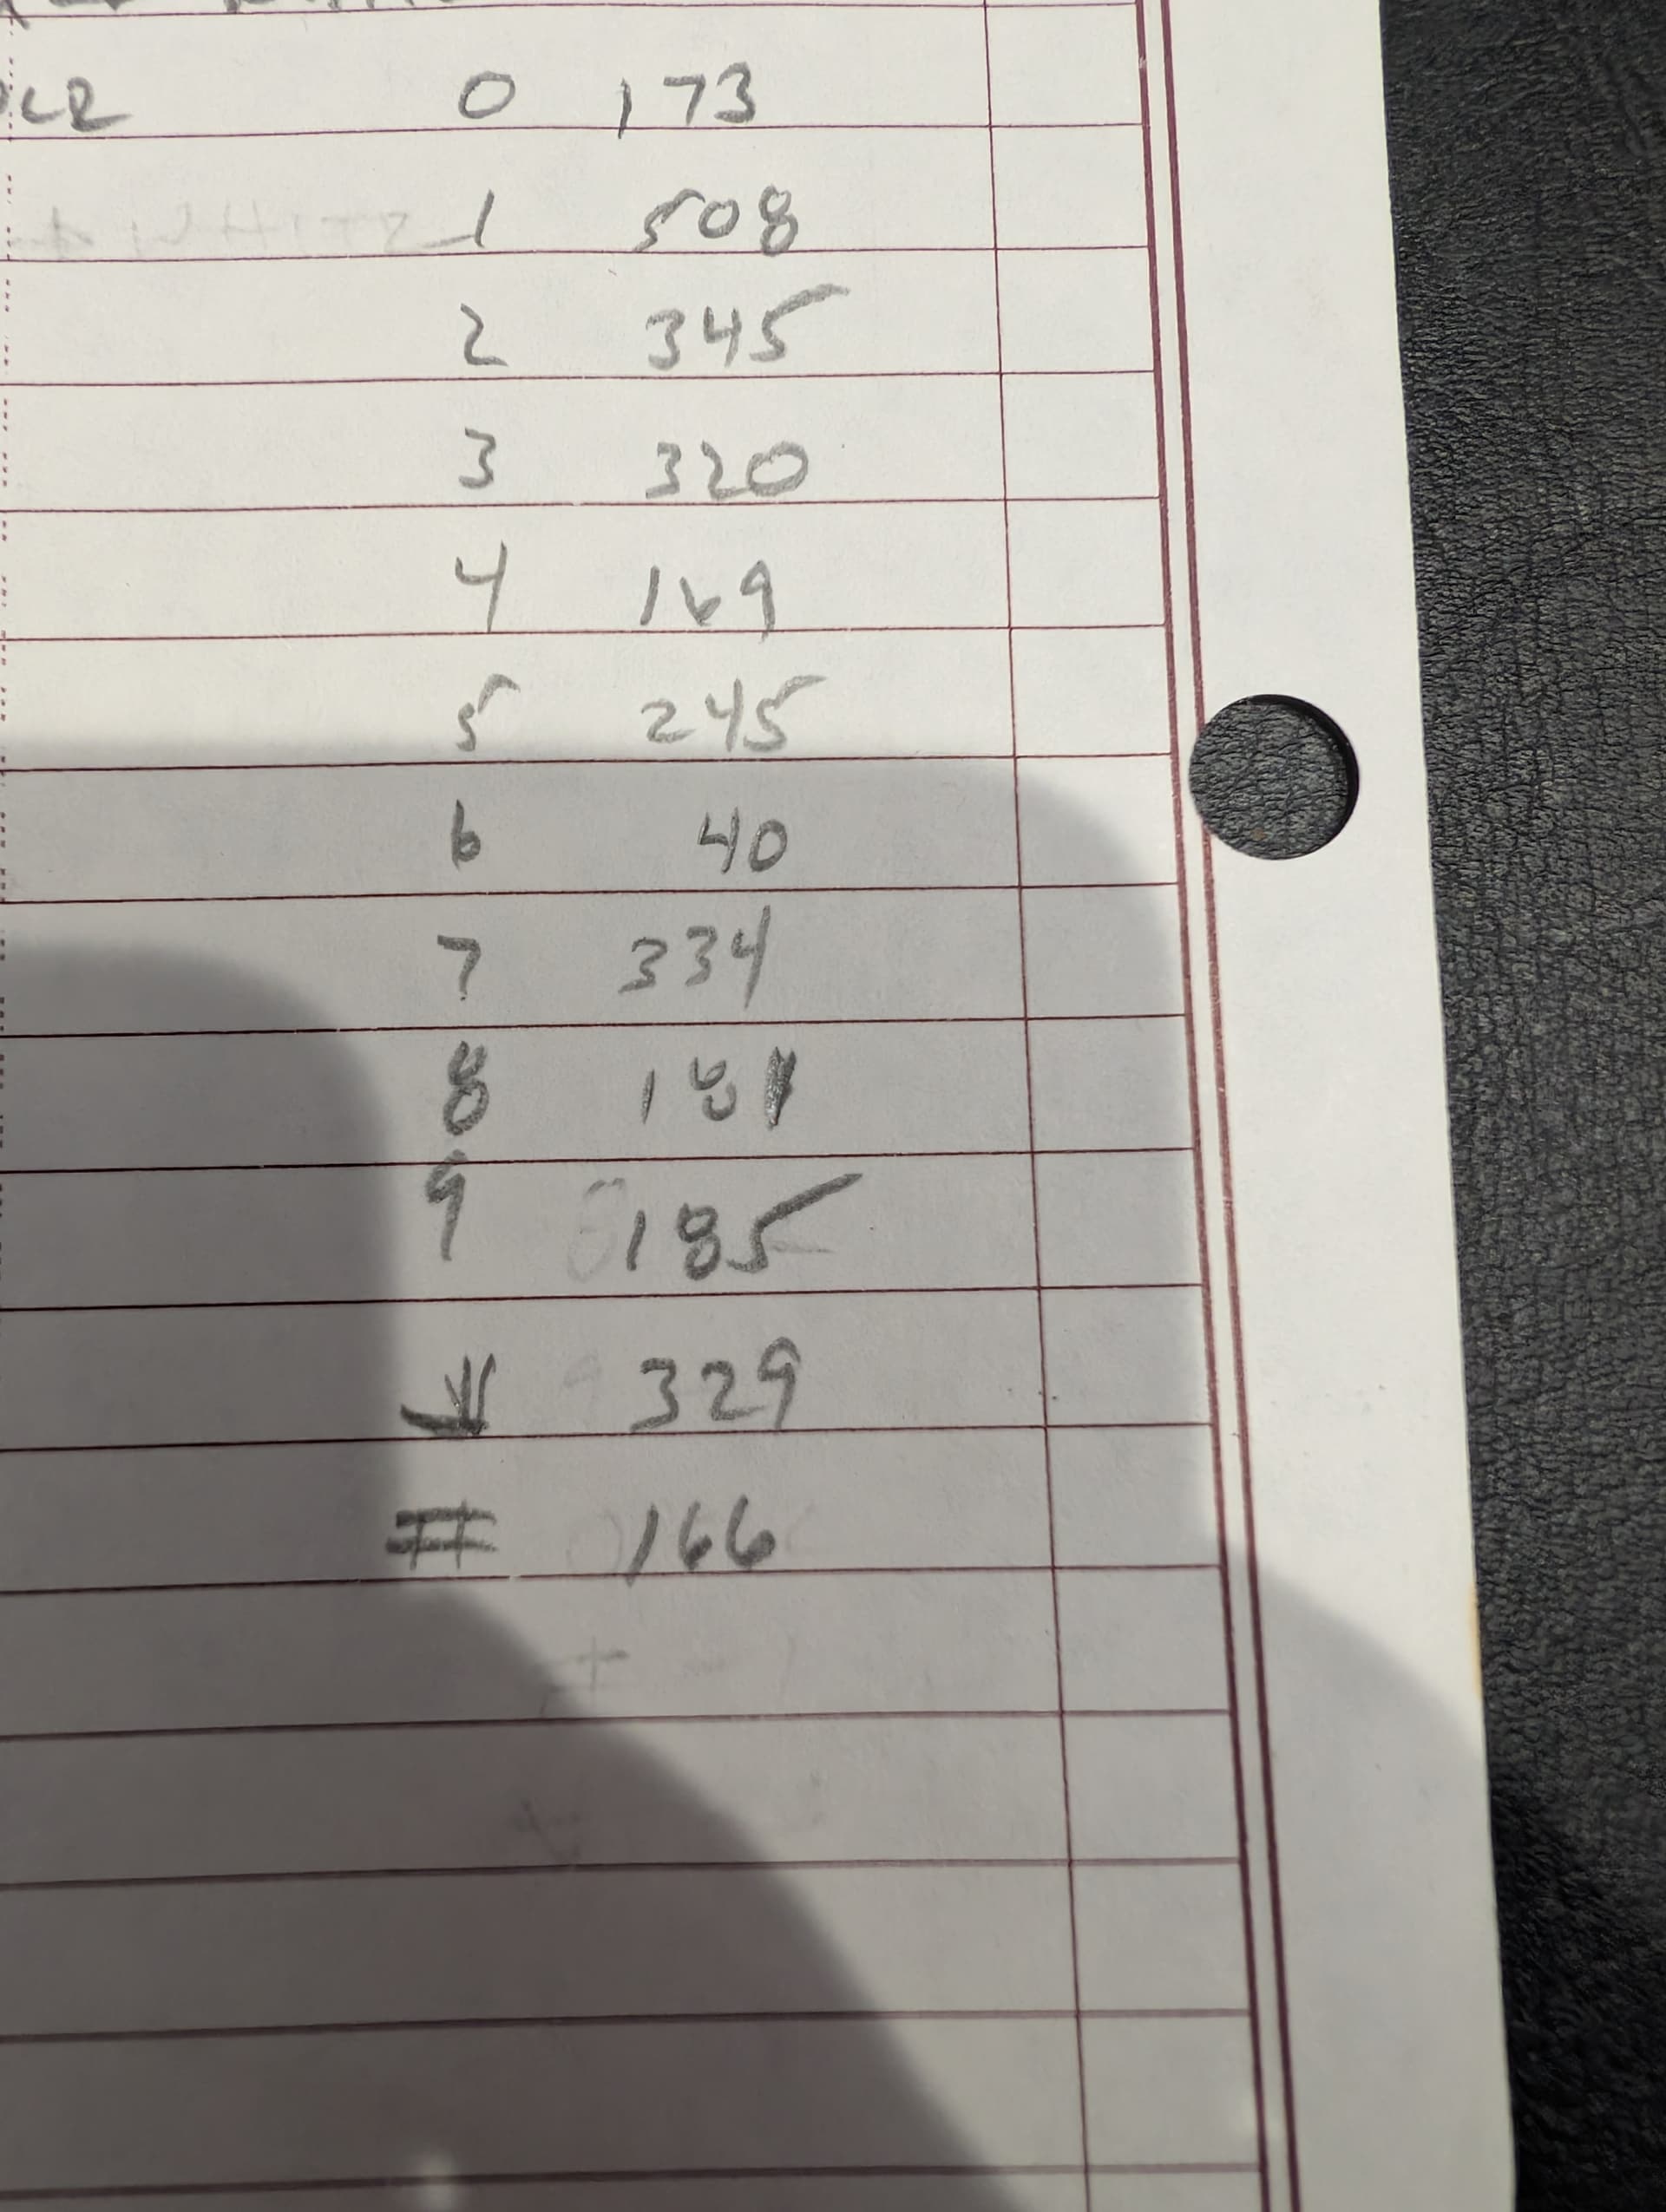 0 173
1 508
2 345
3 320
4 169
5 245
6 40
7 334
8 181
9 185
329
# 166